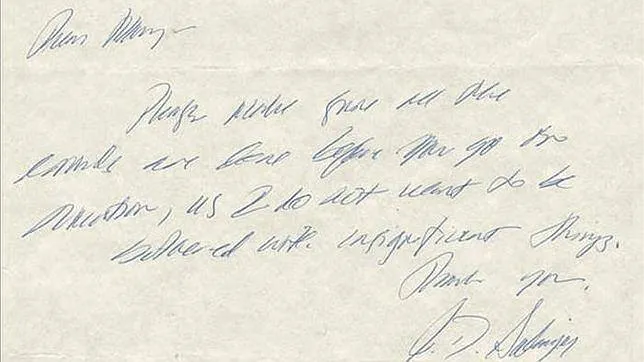 Dear Mary —
Please make sure all the
errands are done before you go on
vacation, as I do not want to be
bothered with insignificant things.
Thank you.
J. D. Salinger